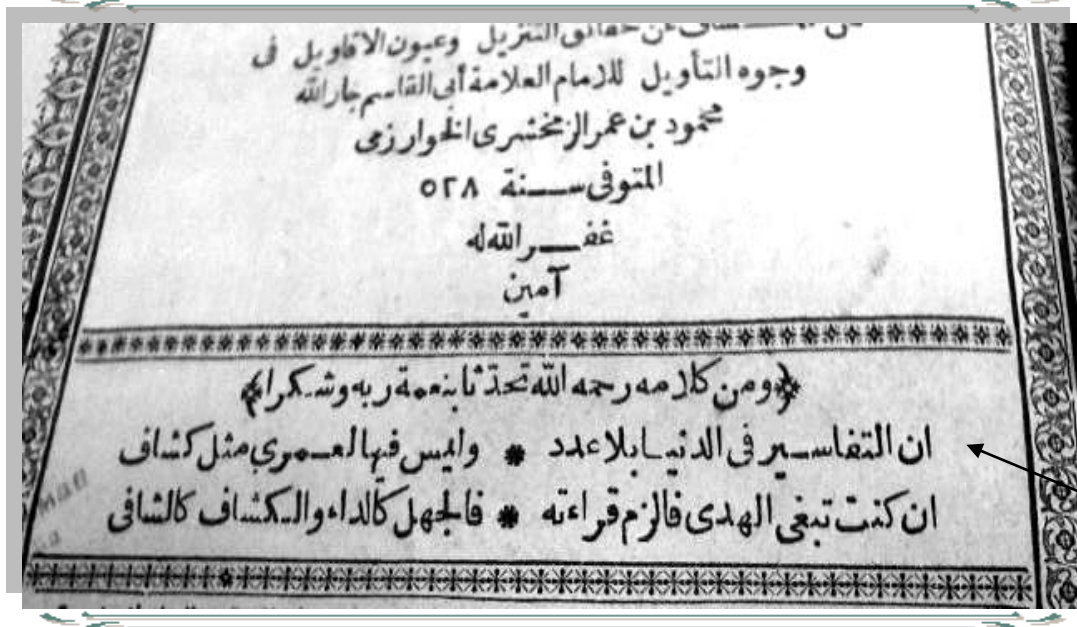 عن حقائق التنزيل وعيون الاقاويل فى
وجوه التأويل للامام العلامة أبى القاسم جار الله
محمود بن عمر الزمخشرى الخوارزمى
المتوفى سنة ٥٢٨
غفر الله له
آمين
﴿ومن كلامه رحمه الله تحدثا بنعمة ربه وشكرا﴾
ان التفاسير فى الدنيا بلا عدد * وليس فيها لعمرى مثل كشاف
ان كنت تبغى الهدى فالزم قراءته * فالجهل كالداء والكشاف كالشافى